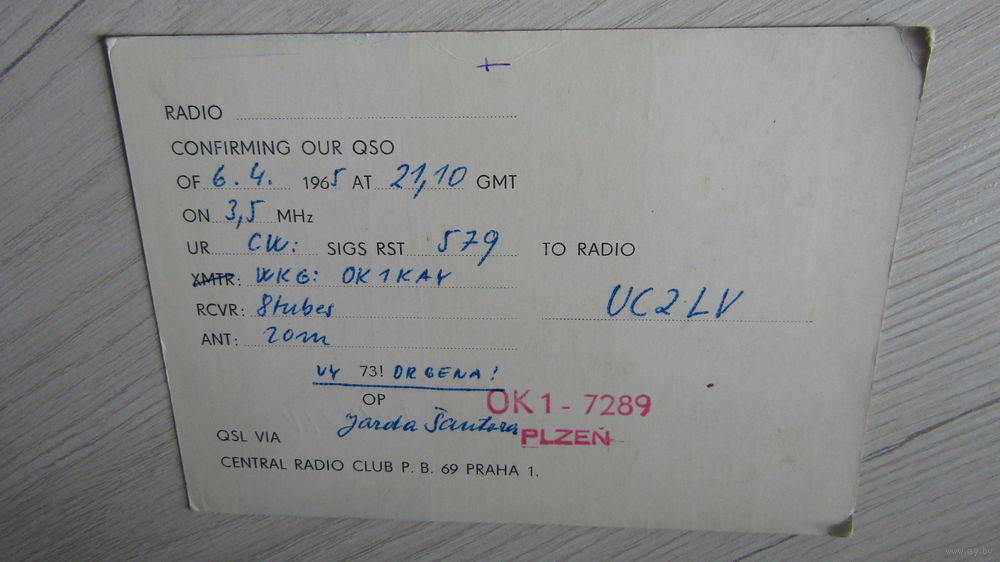 RADIO
CONFIRMING OUR QSO
OF 6.4. 1965 AT 21,10 GMT
ON 3,5 MHz
UR CW: SIGS RST 579 TO RADIO
XMTR: WKG: OK1KAY
UC2LV
RCVR: 8tubes
ANT: 20m
VY 73! DR GENA!
OP OK1-7289
Jarda Šantora PLZEŇ
QSL VIA
CENTRAL RADIO CLUB P. B. 69 PRAHA 1.
www.ay.by